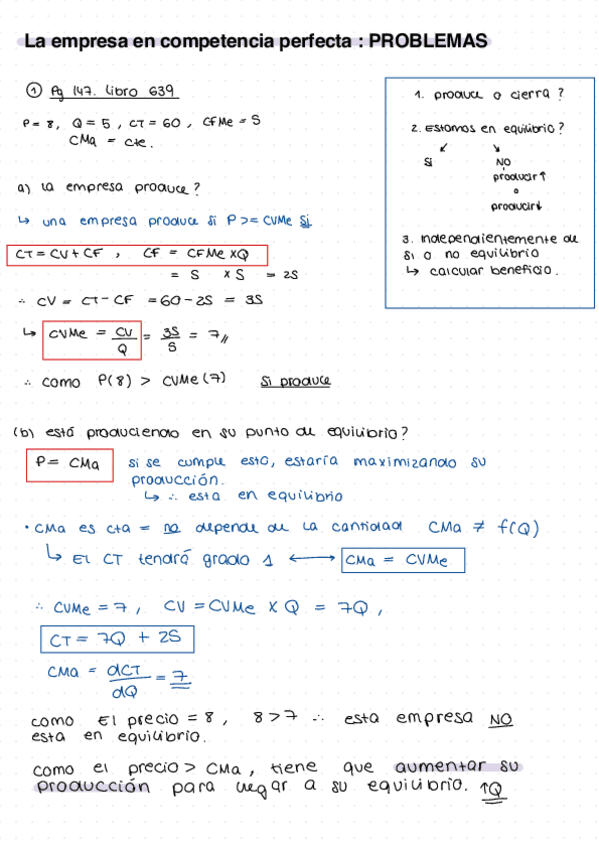 La empresa en competencia perfecta : PROBLEMAS
① Pg 147. libro 639
P = 8, Q = 5, CT = 60, CFMe = 5
CMa = cte.
a) la empresa produce?
↳ una empresa produce si P >= CVMe si
CT = CV + CF , CF = CFMe x Q
= 5 x 5 = 25
∴ CV = CT - CF = 60 - 25 = 35
↳ CVMe = CV/Q = 35/5 = 7,,
∴ como P(8) > CVMe(7) Si produce
1. produce o cierra?
2. Estamos en equilibrio?
↙ ↘
Si NO
producir↑
o
producir↓
3. Independientemente de
si o no equilibrio
↳ calcular beneficio.
(b) está produciendo en su punto de equilibrio?
P = CMa si se cumple esto, estaría maximizando su
producción.
↳ ∴ esta en equilibrio
• CMa es cta = no depende de la cantidad CMa ≠ f(Q)
↳ El CT tendrá grado 1 ⟷ CMa = CVMe
∴ CVMe = 7, CV = CVMe x Q = 7Q,
CT = 7Q + 25
CMa = dCT/dQ = 7
como El precio = 8, 8 > 7 ∴ esta empresa NO
esta en equilibrio.
como el precio > CMa, tiene que aumentar su
producción para llegar a su equilibrio. ↑Q